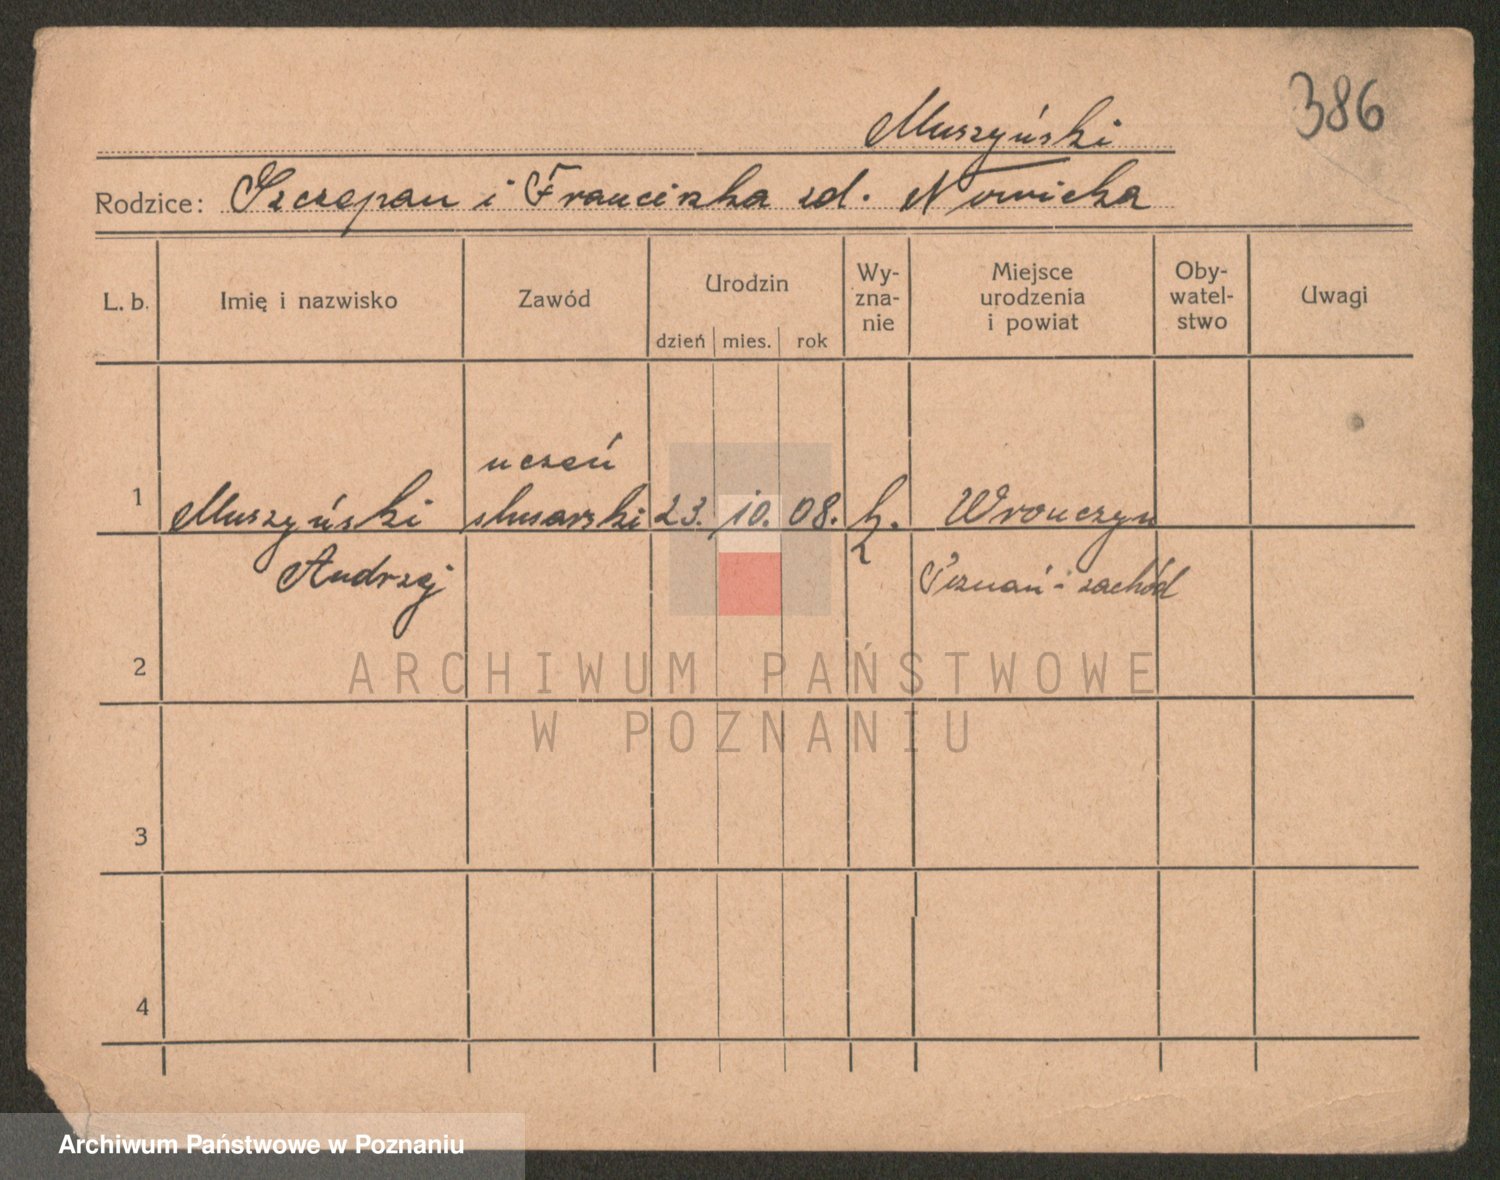 386
Muszyński
Rodzice: Szczepan i Franciszka zd. Nowicka
L. b.
Imię i nazwisko
Zawód
Urodzin
dzień mies. rok
Wy-
zna-
nie
Miejsce
urodzenia
i powiat
Oby-
watel-
stwo
Uwagi
uczeń
1 Muszyński ślusarski 23. 10. 08. k. Wronczyn
Andrzej Poznań-zachód
2
ARCHIWUM PAŃSTWOWE
W POZNANIU
3
4
Archiwum Państwowe w Poznaniu